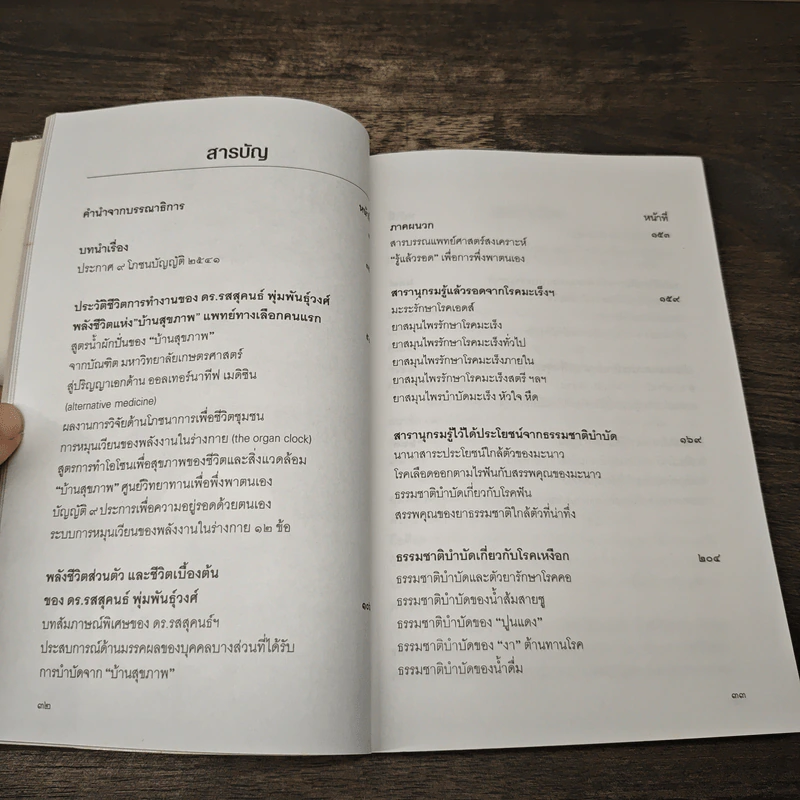 สารบัญ
คำนำจากบรรณาธิการ
บทนำเรื่อง
ประกาศ ๙ โภชนบัญญัติ ๒๕๔๑
ประวัติชีวิตการทำงานของ ดร.รสสุคนธ์ พุ่มพันธุ์วงศ์
พลังชีวิตแห่ง"บ้านสุขภาพ" แพทย์ทางเลือกคนแรก
สูตรน้ำผักปั่นของ "บ้านสุขภาพ"
จากบัณฑิต มหาวิทยาลัยเกษตรศาสตร์
สู่ปริญญาเอกด้าน ออลเทอร์นาทีฟ เมดิซิน
(alternative medicine)
ผลงานการวิจัยด้านโภชนาการเพื่อชีวิตชุมชน
การหมุนเวียนของพลังงานในร่างกาย (the organ clock)
สูตรการทำโอโซนเพื่อสุขภาพของชีวิตและสิ่งแวดล้อม
"บ้านสุขภาพ" ศูนย์วิทยาทานเพื่อพึ่งพาตนเอง
บัญญัติ ๙ ประการเพื่อความอยู่รอดด้วยตนเอง
ระบบการหมุนเวียนของพลังงานในร่างกาย ๑๒ ข้อ
พลังชีวิตส่วนตัว และชีวิตเบื้องต้น
ของ ดร.รสสุคนธ์ พุ่มพันธุ์วงศ์
บทสัมภาษณ์พิเศษของ ดร.รสสุคนธ์ฯ
ประสบการณ์ด้านมรรคผลของบุคคลบางส่วนที่ได้รับ
การบำบัดจาก "บ้านสุขภาพ"
๓๒
หน้าที่
ภาคผนวก ๑๕๓
สารบรรณแพทย์ศาสตร์สงเคราะห์
"รู้แล้วรอด" เพื่อการพึ่งพาตนเอง
สารานุกรมรู้แล้วรอดจากโรคมะเร็งฯ ๑๕๙
มะระรักษาโรคเอดส์
ยาสมุนไพรรักษาโรคมะเร็ง
ยาสมุนไพรรักษาโรคมะเร็งทั่วไป
ยาสมุนไพรรักษาโรคมะเร็งภายใน
ยาสมุนไพรรักษาโรคมะเร็งสตรี ฯลฯ
ยาสมุนไพรบำบัดมะเร็ง หัวใจ หืด
สารานุกรมรู้ไว้ได้ประโยชน์จากธรรมชาติบำบัด ๑๖๙
นานาสาระประโยชน์ใกล้ตัวของมะนาว
โรคเลือดออกตามไรฟันกับสรรพคุณของมะนาว
ธรรมชาติบำบัดเกี่ยวกับโรคฟัน
สรรพคุณของยาธรรมชาติใกล้ตัวที่น่าทึ่ง
ธรรมชาติบำบัดเกี่ยวกับโรคเหงือก ๒๐๔
ธรรมชาติบำบัดและตัวยารักษาโรคคอ
ธรรมชาติบำบัดของน้ำส้มสายชู
ธรรมชาติบำบัดของ "ปูนแดง"
ธรรมชาติบำบัดของ "งา" ต้านทานโรค
ธรรมชาติบำบัดของน้ำดื่ม
๓๓